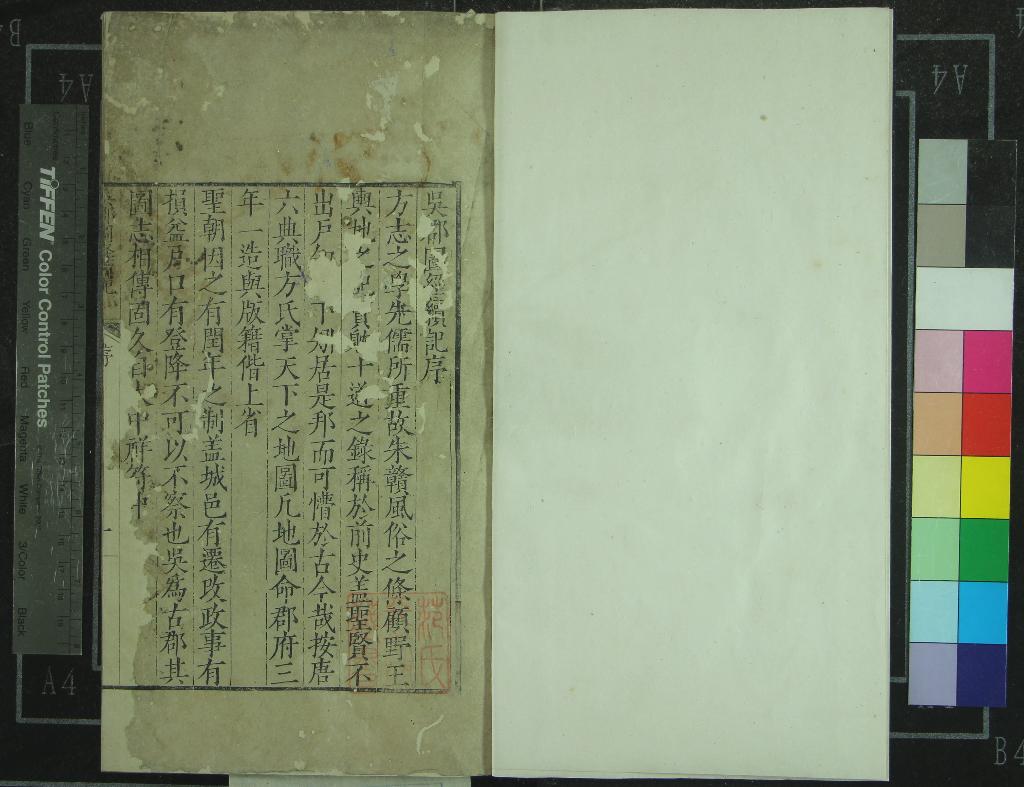 吳郡圖經續記序
方志之學先儒所重故朱贛風俗之條顧野王
輿地之記賈躭十道之錄稱於前史蓋聖賢不
出戶知 下矧居是邦而可懵於古今哉按唐
六典職方氏掌天下之地圖凡地圖命郡府三
年一造與版籍偕上省
聖朝因之有閏年之制蓋城邑有遷改政事有
損益戶口有登降不可以不察也吳爲古郡其
圖志相傳固久自大中祥符中
序
一
TIFFEN Color Control Patches
Blue
Cyan
Green
Yellow
Red
Magenta
White
3/Color
Black
A4
A4
A4
B4
B4